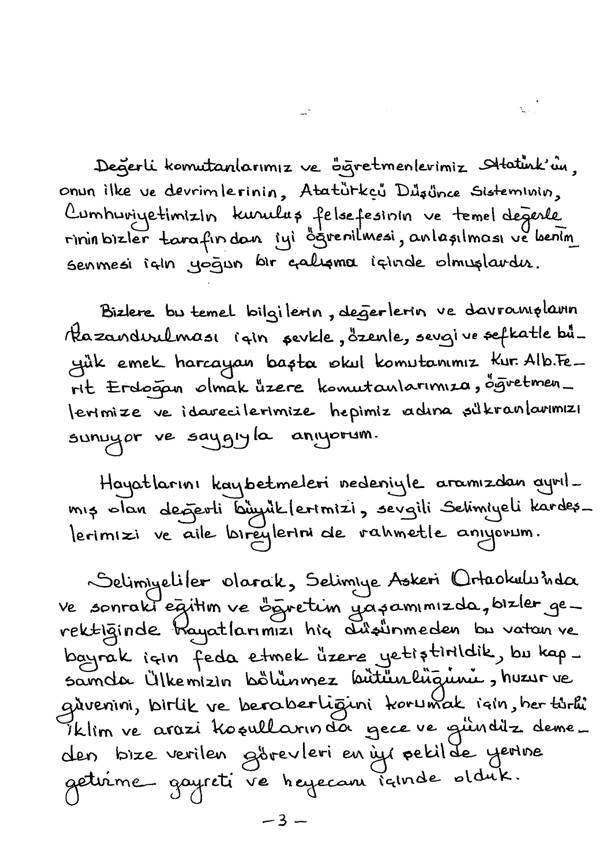 Değerli komutanlarımız ve öğretmenlerimiz Atatürk'ün,
onun ilke ve devrimlerinin, Atatürkçü Düşünce Sisteminin,
Cumhuriyetimizin kuruluş felsefesinin ve temel değerle
rinin bizler tarafından iyi öğrenilmesi, anlaşılması ve benim_
senmesi için yoğun bir çalışma içinde olmuşlardır.
Bizlere bu temel bilgilerin, değerlerin ve davranışların
kazandırılması için şevkle, özenle, sevgi ve şefkatle bü_
yük emek harcayan başta okul komutanımız Kur. Alb. Fe_
rit Erdoğan olmak üzere komutanlarımıza, öğretmen_
lerimize ve idarecilerimize hepimiz adına şükranlarımızı
sunuyor ve saygıyla anıyorum.
Hayatlarını kaybetmeleri nedeniyle aramızdan ayrıl_
mış olan değerli büyüklerimizi, sevgili Selimiyeli kardeş_
lerimizi ve aile bireylerini de rahmetle anıyorum.
Selimiyeliler olarak, Selimiye Askeri Ortaokulu'nda
ve sonraki eğitim ve öğretim yaşamımızda, bizler ge_
rektiğinde hayatlarımızı hiç düşünmeden bu vatan ve
bayrak için feda etmek üzere yetiştirildik, bu kap_
samda Ülkemizin bölünmez bütünlüğünü, huzur ve
güvenini, birlik ve beraberliğini korumak için, her türlü
iklim ve arazi koşullarında gece ve gündüz deme_
den bize verilen görevleri en iyi şekilde yerine
getirme gayreti ve heyecanı içinde olduk.
_3_